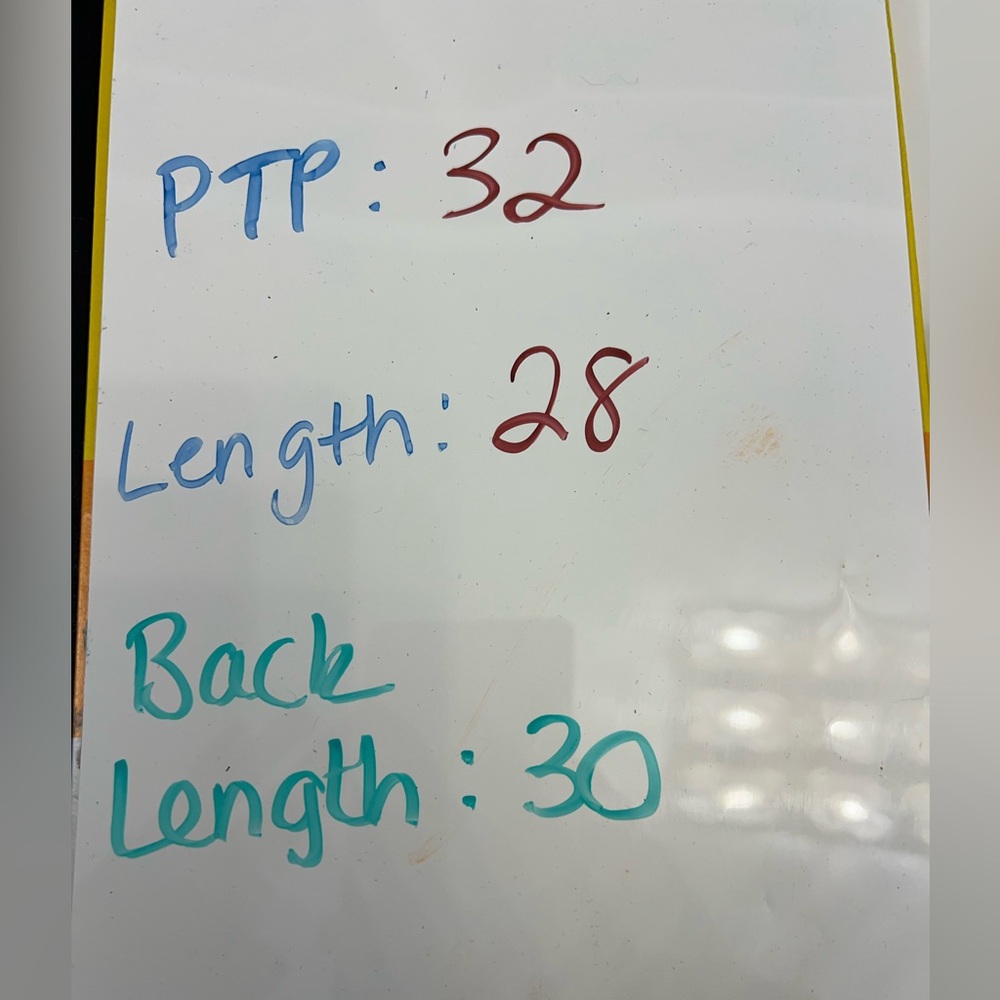 PTP: 32
Length: 28
Back
Length: 30